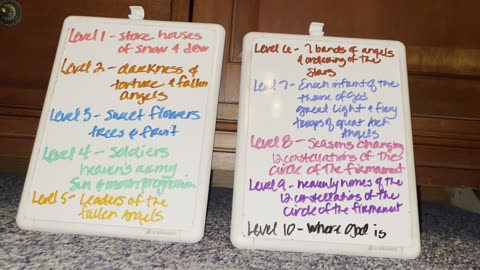 Level 1 - store houses
of snow & dew
Level 2 - darkness &
torture & fallen
angels
Level 3 - sweet flowers
trees & fruit
Level 4 - soldiers
heaven's army
Sun & moon progression
Level 5 - Leaders of the
fallen Angels
Level 6 - 7 bands of angels
& ordering of the
stars
Level 7 - Enoch infront of the
throne of God
great Light & fiery
troops of great Arch
Angels
Level 8 - Seasons changing
12 constellations of the
circle of the firmament
Level 9 - heavenly homes of the
12 constellations of the
circle of the firmament
Level 10 - Where God is